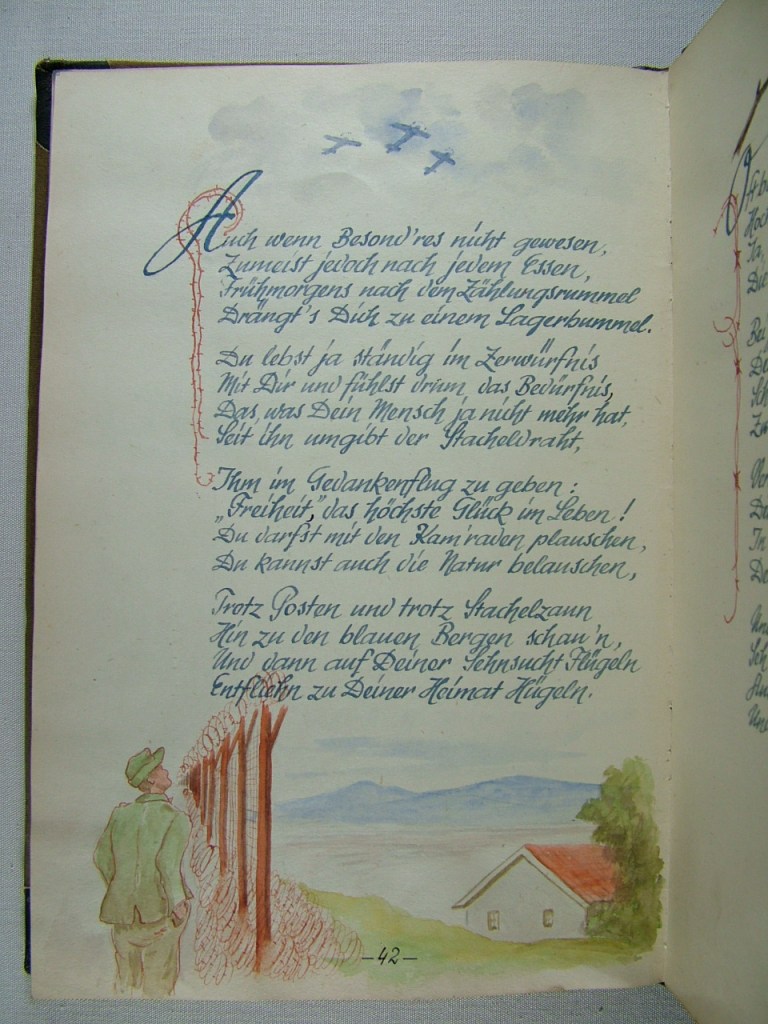 Auch wenn Besond'res nicht gewesen,
Zumeist jedoch nach jedem Essen,
Frühmorgens nach dem Zählungsrummel
Drängt's Dich zu einem Lagerbummel.
Du lebst ja ständig im Zerwürfnis
Mit Dir und fühlst drum das Bedürfnis,
Das, was Dein Mensch ja nicht mehr hat,
Seit ihn umgibt der Stacheldraht,
Ihm im Gedankenflug zu geben:
„Freiheit,” das höchste Glück im Leben!
Du darfst mit den Kam'raden plauschen,
Du kannst auch die Natur belauschen,
Trotz Posten und trotz Stachelzaun
Hin zu den blauen Bergen schau'n,
Und dann auf Deiner Sehnsucht Flügeln
Entfliehn zu Deiner Heimat Hügeln.
-42-